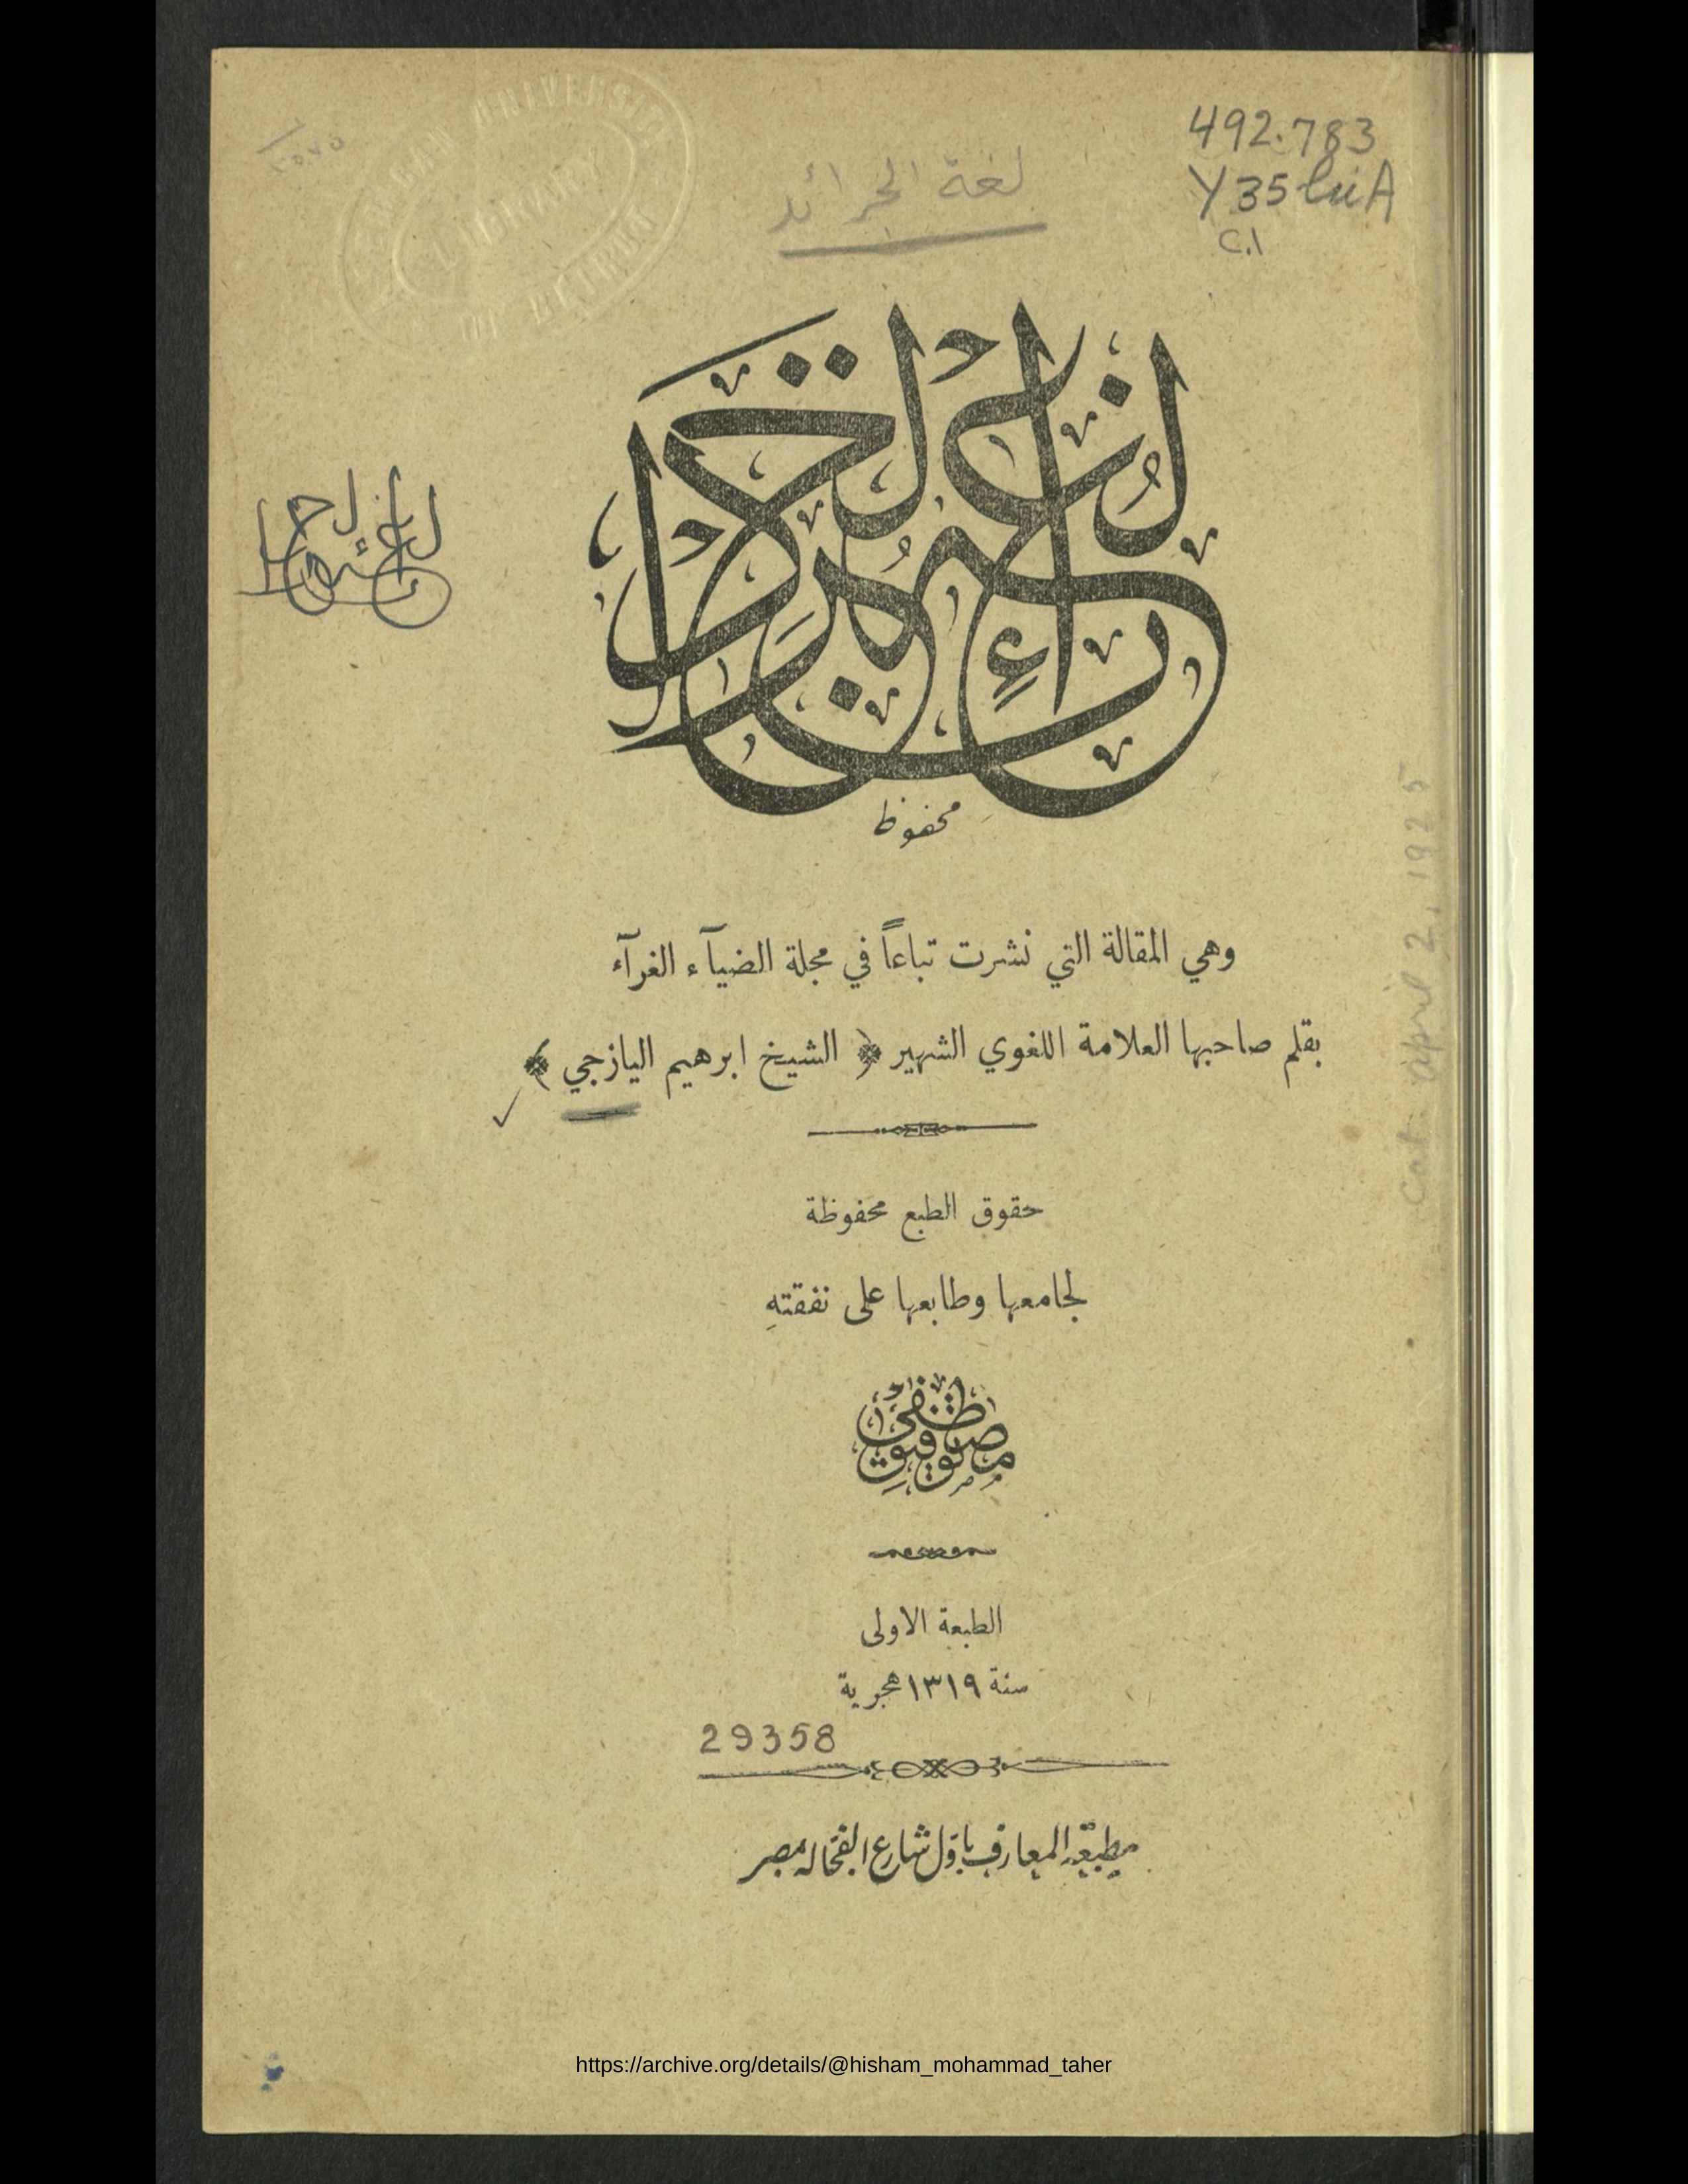 AMERICAN UNIVERSITY
LIBRARY
OF BEIRUT
492.783
Y35luA
c.1
لغة الجرائد
لغة الجرائد
محفوظ
وهي المقالة التي نشرت تباعاً في مجلة الضيآء الغرآء
بقلم صاحبها العلامة اللغوي الشهير ﴿ الشيخ ابرهيم اليازجي ﴾
حقوق الطبع محفوظة
لجامعها وطابعها على نفقتهِ
مصطفى توفيق
الطبعة الاولى
سنة ١٣١٩ هجرية
29358
مطبعة المعارف باول شارع الفجاله بمصر
Cat. april 2, 1925
https://archive.org/details/@hisham_mohammad_taher